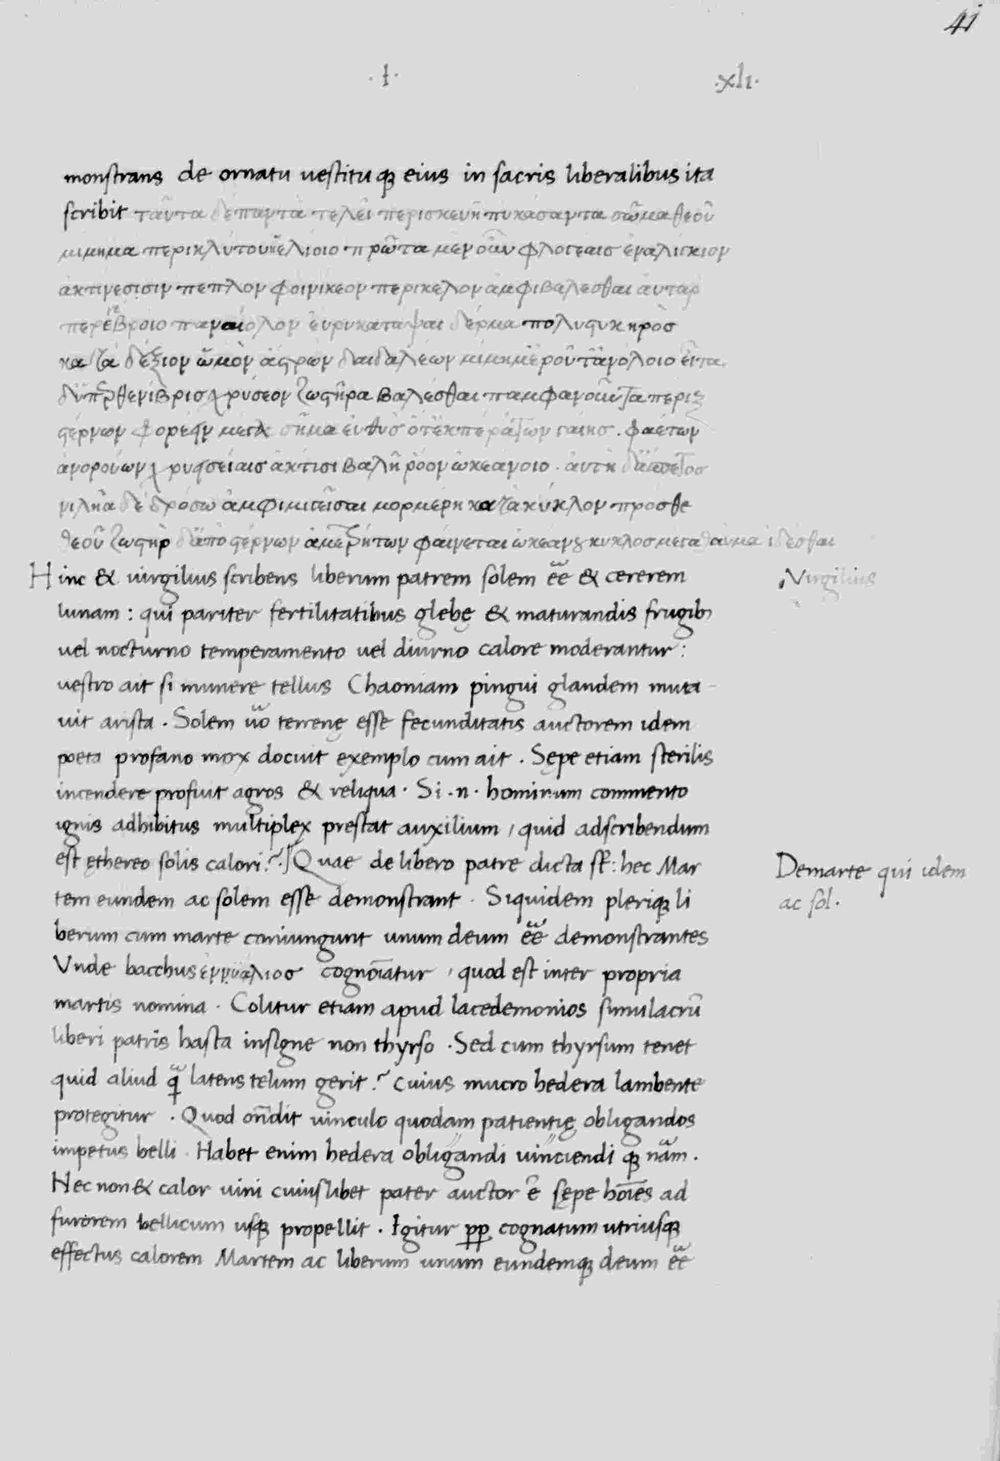 41
·I·
·xli·
monstrans de ornatu uestituq; eius in sacris liberalibus ita
scribit ταῦτα δέ παντὰ τελεῖ περισκευῆ πυκάσαντα σῶμα θεοῦ
μιμημα περικλύτου ἠελίοιο πρῶτα μὲν οὖν φλογεαις ἐναλιγκιον
ἀκτινεσισιν πεπλον φοινικεον περικελον ἀμφιβαλεσθαι ἀυταρ
παναιόλον ἐυρυ καταψαι δέρμα πολυςυκ
δεξιον ὦμὸν ἀςρῶν δαιδαλέων
χρύσεον ζωςῆρα βαλέσθαι παμφανοῶντα περιξ
ςέρνων φορεῆν μεγα σῆμα ἐυθυς ὁτ ἐκ περάτων γαιης . φαέτων
ἀνορούων χρυσειαις ἀκτισι βαλῆ ρόον ὠκεανοιο . ἀυτὴ
δέ δρόσω ἀμφιμιγεῖσαι μορμερη κατὰ κύκλον προσθε
θεοῦ ζωςηρ δ᾽ἀπὸ ςέρνων ἀμετρήτων φαίνεται ὠκεανȣ κυκλος μεγα θαῦμα ἰδέσθαι
Hinc & uirgilius scribens liberum patrem solem eē & cererem
Virgilius
lunam : qui pariter fertilitatibus glebę & maturandis frugib;
uel nocturno temperamento uel diurno calore moderantur :
uestro ait si munere tellus Chaoniam pingui glandem muta-
uit arista . Solem uō terrenę esse fecunditatis auctorem idem
poeta profano mox docuit exemplo cum ait . Sępe etiam sterilis
incendere profuit agros & reliqua . Si .n. hominum commento
ignis adhibitus multiplex prestat auxilium / quid adscribendum
est ęthereo solis calori ? . Quae de libero patre dicta sūt : hec Mar
Demarte qui idem
ac sol .
tem eundem ac solem esse demonstrant . Siquidem pleriq; li
berum cum marte coniungunt unum deum eē demonstrantes
Vnde bacchus ἐνυάλιοσ cognoīatur / quod est inter propria
martis nomina . Colitur etiam apud lacedemonios simulacrū
liberi patris hasta insigne non thyrso . Sed cum thyrsum tenet
quid aliud q̄ latens telum gerit ? cuius mucro hedera lambente
protegitur . Quod on̄dit uinculo quodam patientię obligandos
impetus belli . Habet enim hedera obligandi uinciendi q; nām .
Nec non & calor uini cuius libet pater auctor ē sępe hoīes ad
furorem bellicum usq; propellit . Igitur pp̱ cognatum utriusq;
effectus calorem Martem ac liberum unum eundemq; deum eē